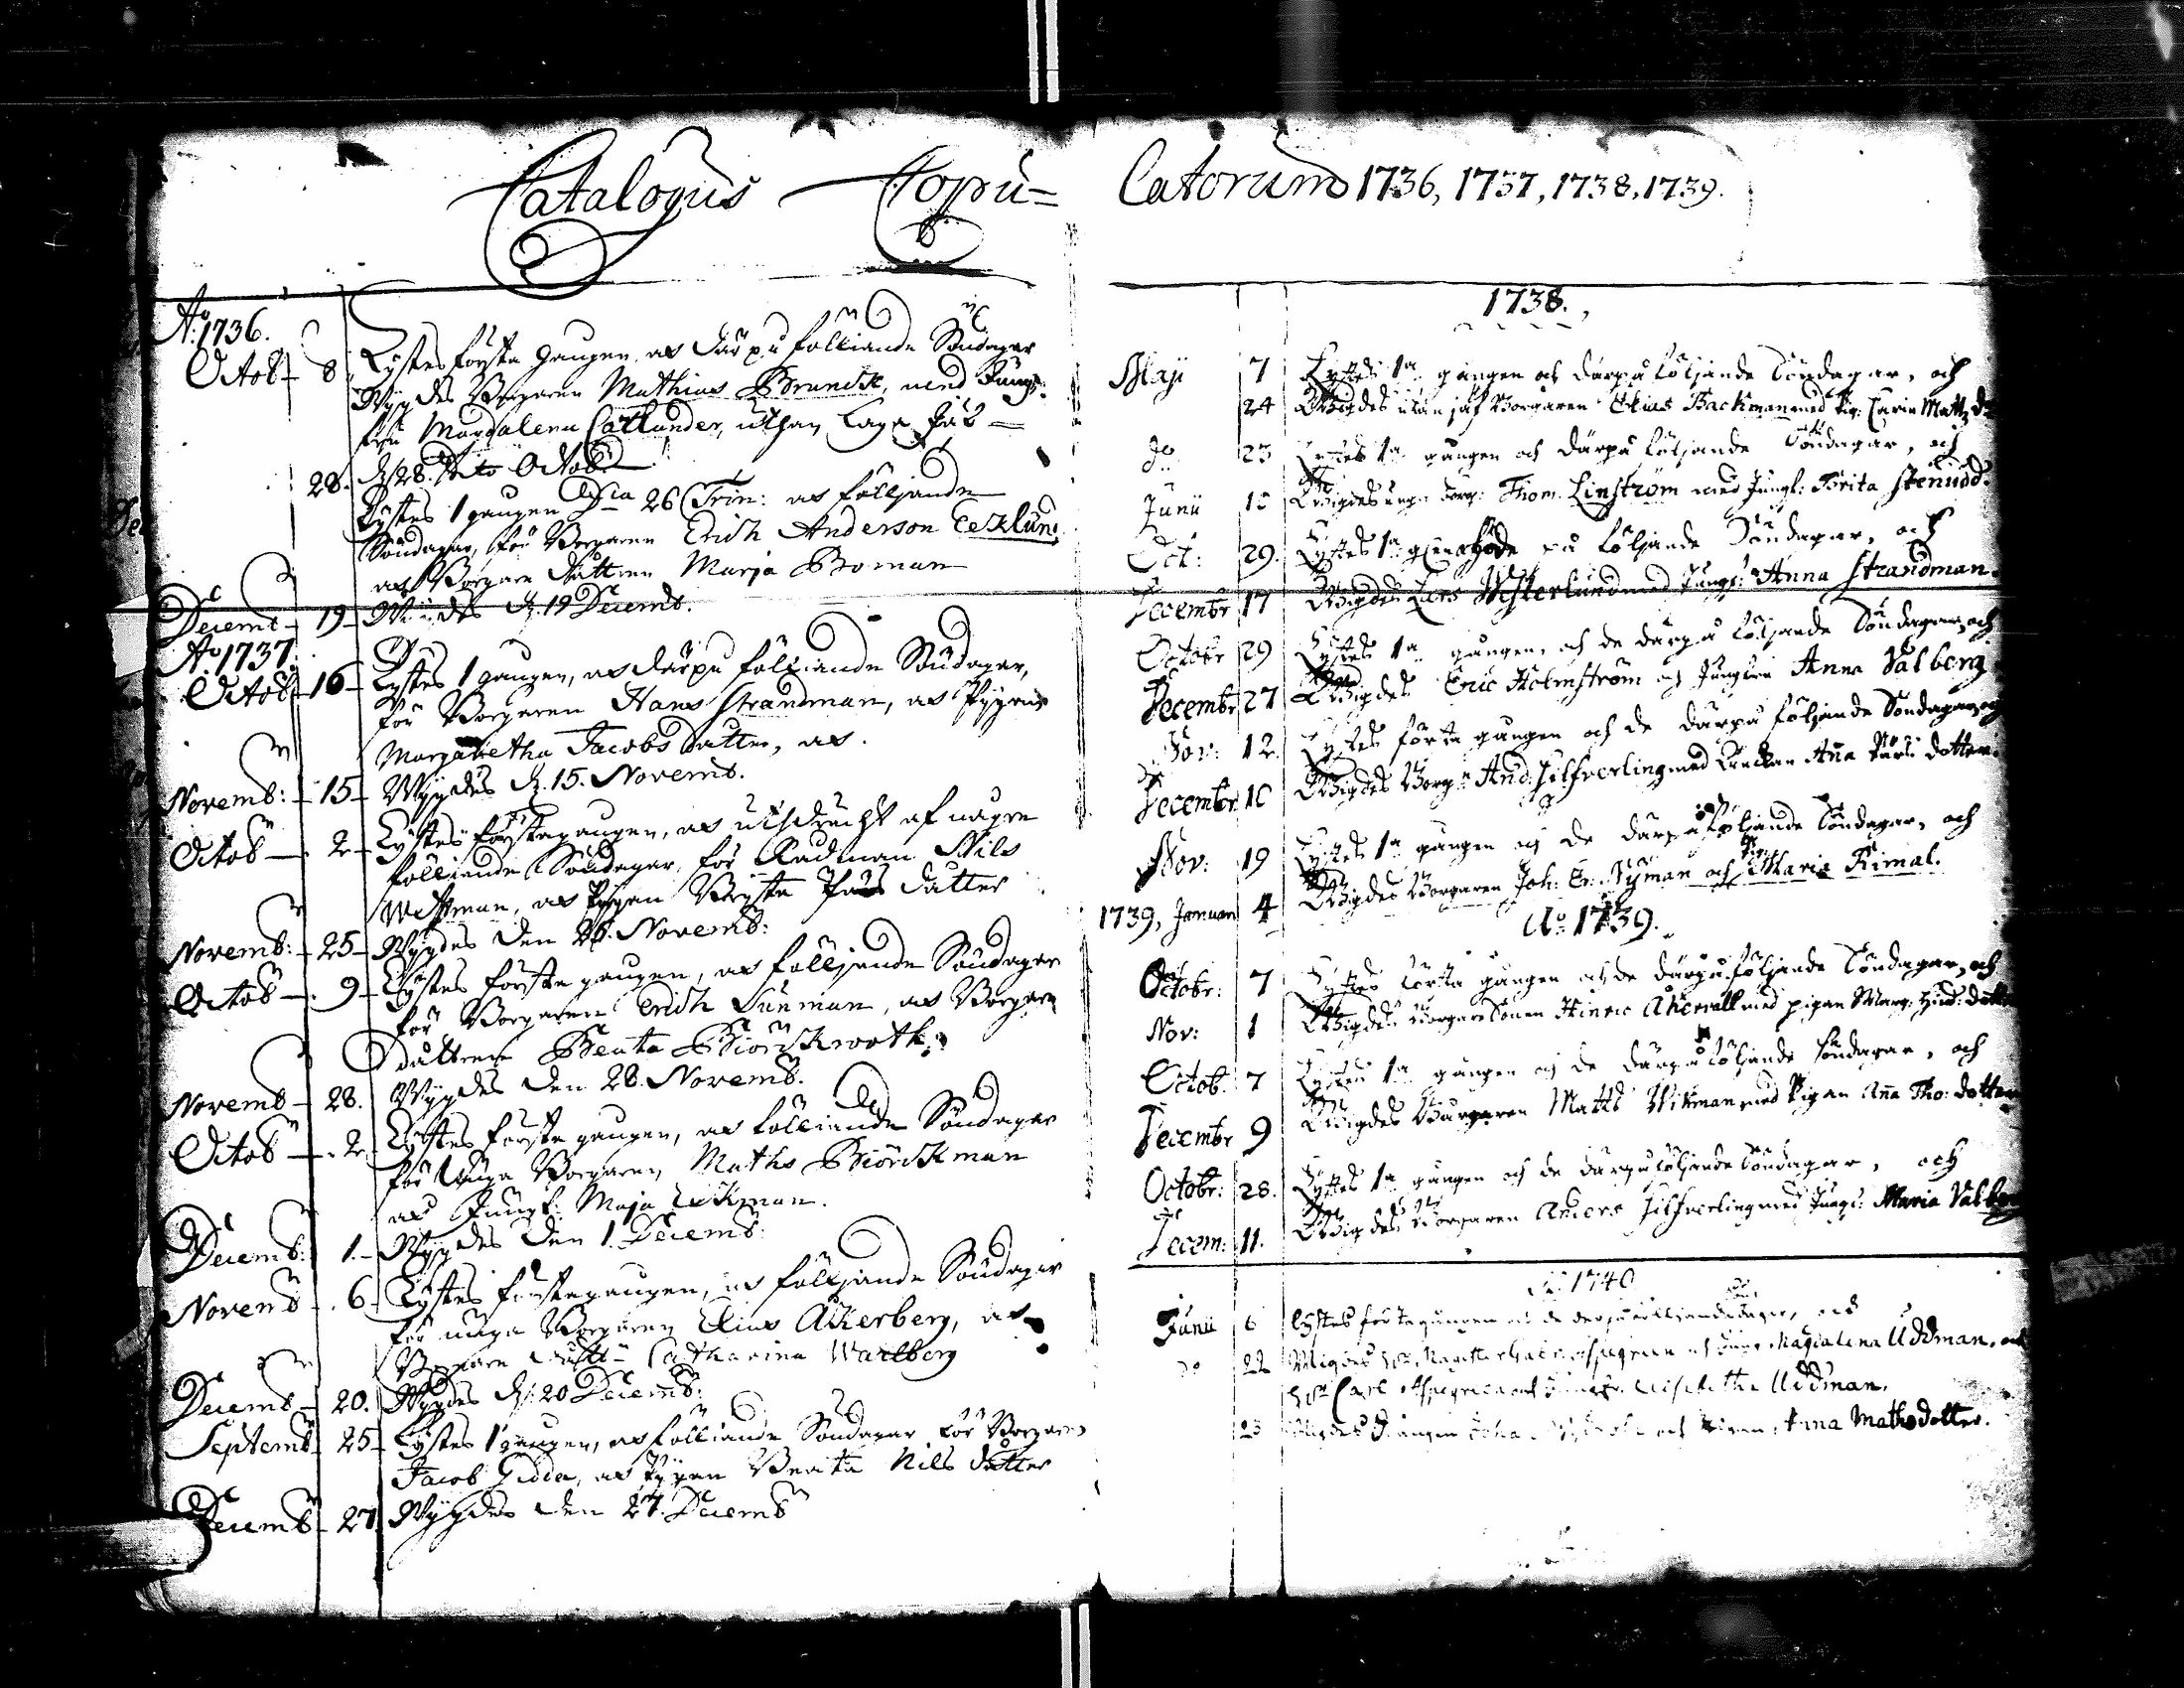 Catalogus Copu=
A:o 1736.
Octob 8 Lystes första gangen, ok därpu följiande Söndagar
Wygdes Borgaren Mathias Brunck, med Jungf:
fru Magdalena Catlander, uthan Laga
28. d. 28. Octob.
Lystes 1 gangen D:ca 26 Trin: ok följande
Söndagar, för Borgaren Erich Anderson Ecklund
ok Borgare dattren Marja Boman
Decemb 19 Wigdes d. 19 Decemb.
A:o 1737.
Octob 16 Lystes 1 gangen, ok därpu följiande Söndagar,
för Borgaren Hans Strandman, ok Pygan
Margaretha Jacobs datter, ok.
Novemb: 15 Wygdes d. 15. Novemb.
Octob 2 Lystes förstagangen, ok af
följiande Söndagar, för Radman Nils
ok Pigan datter
Novemb: 25 Wygdes den 25. Novemb:
Octob 9 Lystes förste gangen, ok följiande Söndagar
för Borgaren Erich Sunman, ok Borgare
dattren Beata
Novemb 28. Wygdes den 28. Novemb.
Octob 2 Lystes förste gangen, ok följiande Söndagar
för unga Borgaren Maths Biörckman
ok Jungf: Maja Eckman.
Decemb: 1. Wygdes den 1. Decemb:
Novemb 6 Lystes förstegangen, ok följiande Söndagar
för unga Borgaren Elias Åkerberg, ok
Borgare datt: Catharina Warlberg
Decemb 20. Wygdes d. 20 Decemb:
Septemb 25 Lystes 1 gangen, ok följiande Söndagar för Borgaren
Jacob Gidda, ok Pygan Beata Nils datter
Decemb 27. Wygdes den 27. Decemb
latorum 1736, 1737, 1738, 1739.
1738.
Maji 7 Lystes 1a gången och därpå följande Söndagar, och
24 Wigdes utan jäf Borgaren Elias Backman med Pig: Carin Matts d:
d:o 23 Lystes 1a gången och därpå följande Söndagar, och
Junii 18 Wigdes Borg: Thom. Linström med Jungf: Brita Stenudd.
Oct: 29. Lystes 1a på följande Söndagar, och
Decembr 17 Wigdes Lars Westerlund med Jungf: Anna Strandman.
Octobr 29 Lystes 1a gången, och de därpå följande Söndagar, och
Decembr 27 Wigdes Eric Holmström och Jungfrun Anna Valberg
Nov: 12. Lystes första gången och de därpå följande Söndagar, och
Decembr 10 Wigdes Borg:n And. Silfverling med Enckan Anna Lars dotter.
Nov: 19 Lystes 1a gången och de därpå följande Söndagar, och
1739, Januari 4 Wigdes Borgaren Joh: Er: Nyman och Pig: Maria Rimal.
A:o 1739.
Octobr: 7 Lystes första gången och de därpå följande Söndagar, och
Nov: 1 Wigdes Borgare Sonen Hinric Åkerwall med pigan Marg: Hind: dotter
Octob. 7 Lystes 1a gången och de därpå följande Söndagar, och
Decembr 9 Wigdes Borgaren Matts Wikman med Pigan Anna Tho: dotter
Octobr: 28. Lystes 1a gången och de därpå följande Söndagar, och
Decem: 11. Wigdes Borgaren Anders Silfverling med Jungf: Maria Valberg
A:o 1740
Junii 6 Lystes förtagången och de derpå följande dagar, och
d:o 22 Wigdes och Magdalena Uddman, och
Carl och Elisabetha Uddman.
23 Wigdes och Pigan Anna Mathsdotter.